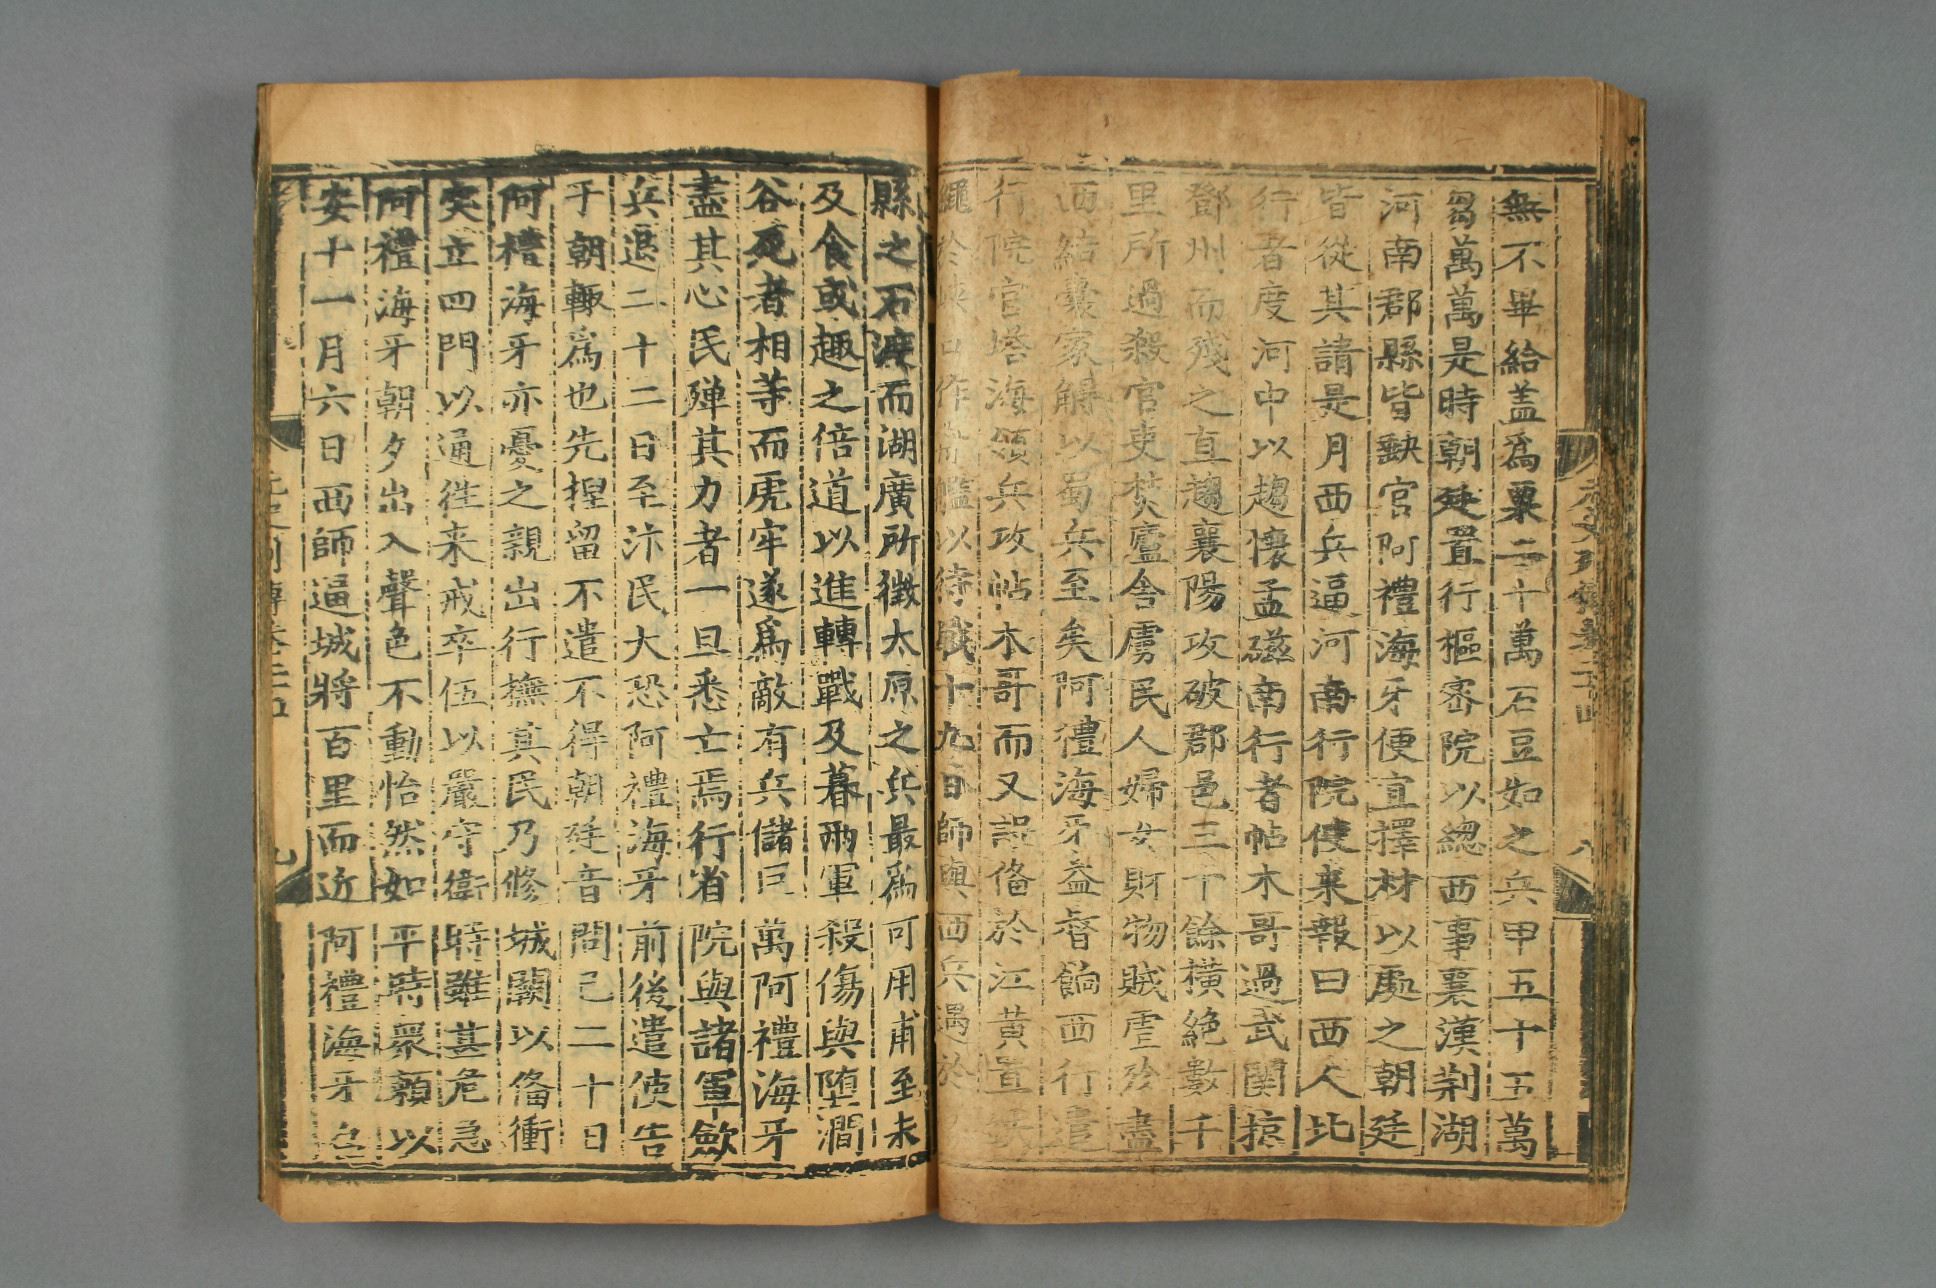 無不畢給盖爲粟二十萬石豆如之兵甲五十五萬
芻萬萬是時朝廷置行樞宻院以總西事襄漢荆湖
河南郡縣皆缺官阿禮海牙便宜擇材以處之朝廷
皆從其請是月西兵逼河南行院使来報曰西人北
行者度河中以趨懐孟磁南行者帖木哥過武關掠
鄧州而殘之直趨襄陽攻破郡邑三十餘横絶數千
里所過殺官吏焚廬舎虜民人婦女財物賊虐殄盡
西結囊家觧以蜀兵至矣阿禮海牙益督餉西行遣
行院官塔海領兵攻帖木哥而又設俻於江黄置鐵
繩於峽口作舟艦以待戰十九日師與西兵遇於
縣之石渡而湖廣所徵太原之兵最爲可用甫至未
及食或趣之倍道以進轉戰及暮兩軍殺傷與堕澗
谷死者相等而虎牢遂爲敵有兵儲巨萬阿禮海牙
盡其心民殫其力者一旦悉亡焉行省院與諸軍歛
兵退二十二日至汴民大恐阿禮海牙前後遣使告
于朝輙爲也先揑留不遣不得朝廷音問已二十日
阿禮海牙亦憂之親出行撫其民乃修城闕以俻衝
突立四門以通徃来戒卒伍以嚴守衛時雖甚危急
阿禮海牙朝夕出入聲色不動怡然如平時衆頼以
安十一月六日西師逼城將百里而近阿禮海牙召